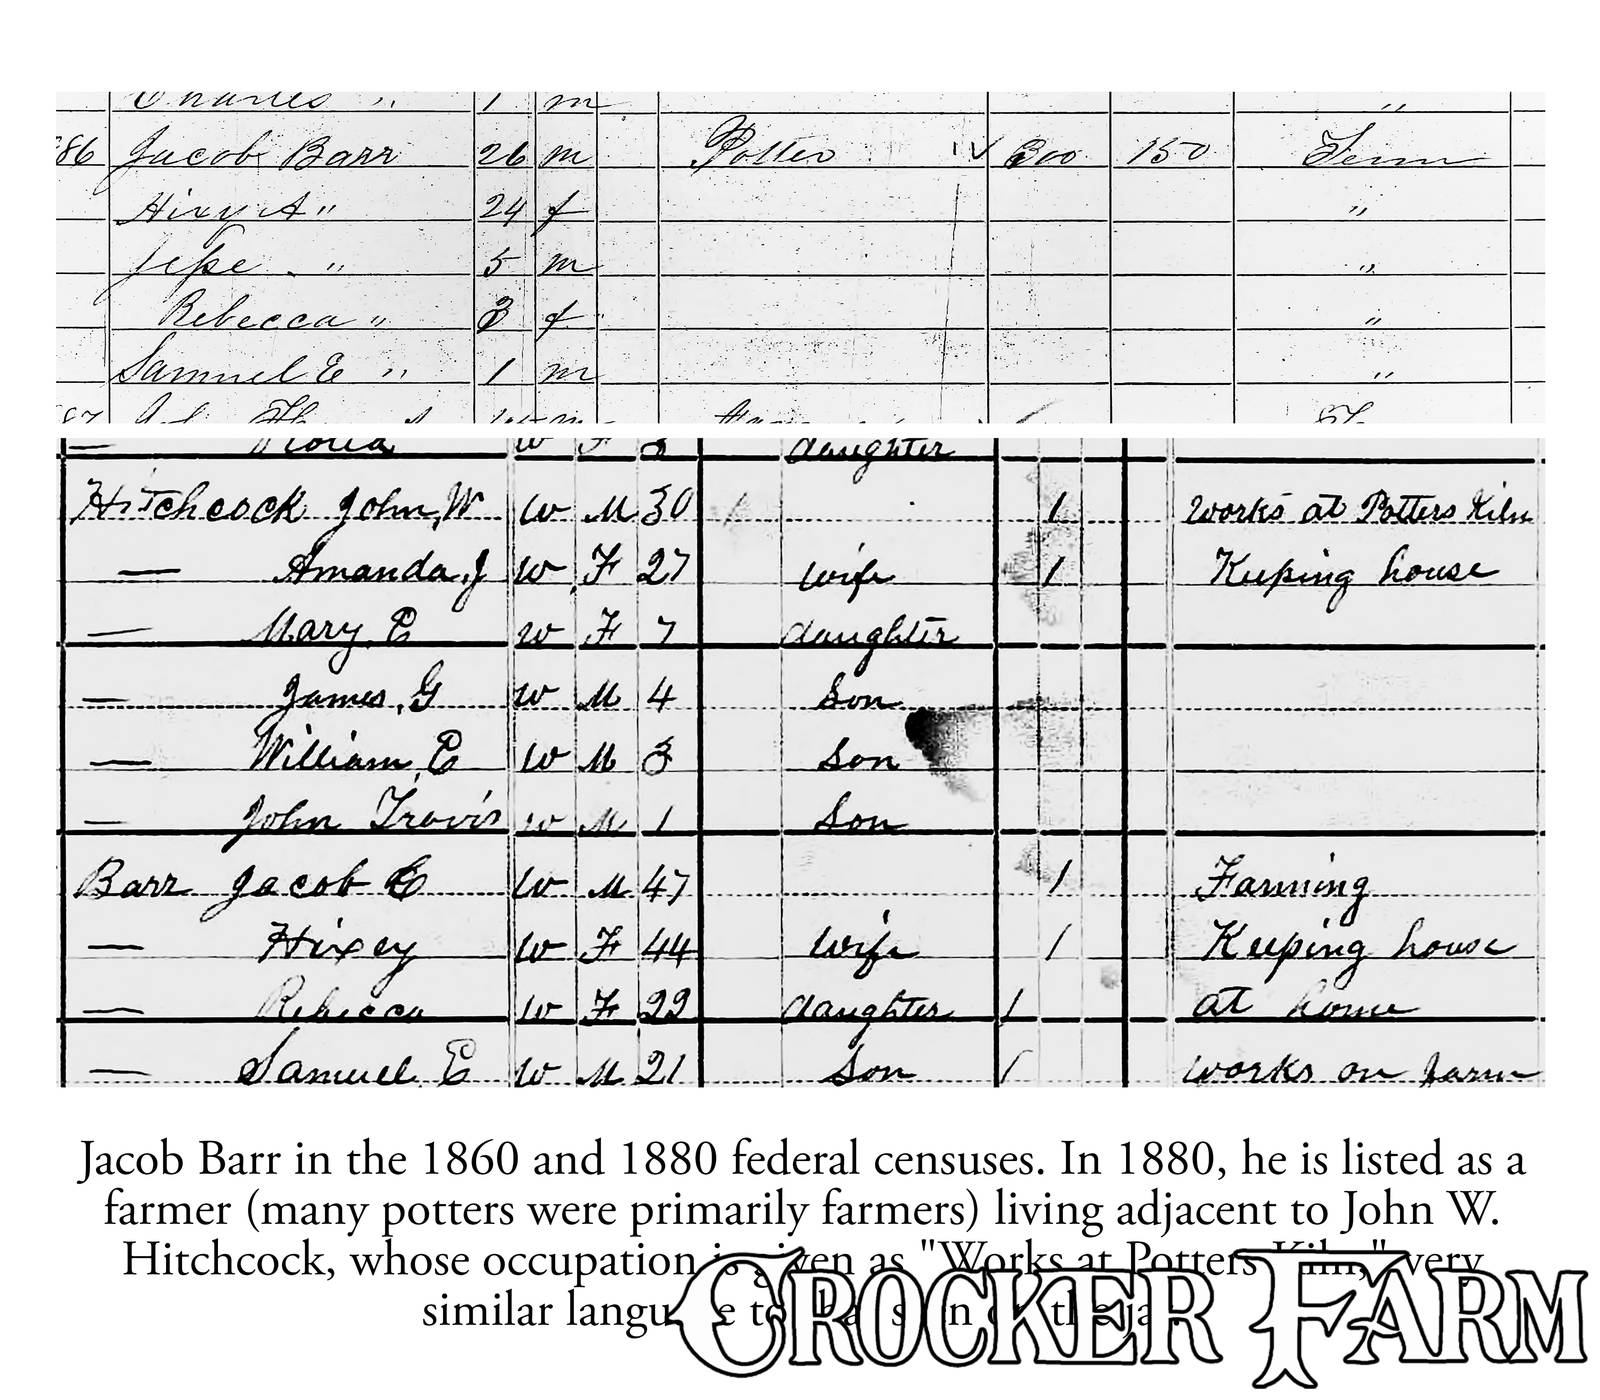 Charles " 1 m "
86 Jacob Barr 26 m Potter 300 150 Tenn
Hixy A " 24 f "
Jesse " 5 m "
Rebecca " 3 f "
Samuel E " 1 m "
87
daughter
Hitchcock John, W W M 30 1 works at Potters Kiln
— Amanda, J W F 27 wife 1 Keeping house
— Mary, E W F 7 daughter
— James, G W M 4 Son
— William, E W M 3 Son
— John Travis W M 1 Son
Barr Jacob E W M 47 1 Farming
— Hixey W F 44 wife 1 Keeping house
— Rebecca W F 22 daughter 1 at home
— Samuel E W M 21 Son 1 works on farm
Jacob Barr in the 1860 and 1880 federal censuses. In 1880, he is listed as a
farmer (many potters were primarily farmers) living adjacent to John W.
Hitchcock, whose occupation is given as "Works at Potters Kiln," very
similar language to that
CROCKER FARM